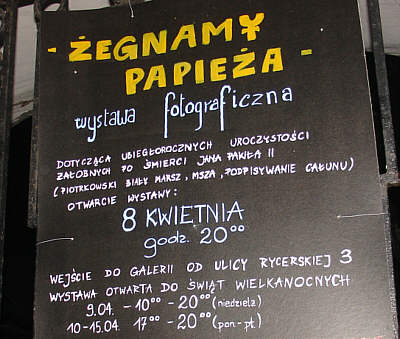 - ŻEGNAMY
PAPIEŻA -
wystawa fotograficzna
DOTYCZĄCA UBIEGŁOROCZNYCH UROCZYSTOŚCI
ŻAŁOBNYCH PO ŚMIERCI JANA PAWŁA II
(PIOTRKOWSKI BIAŁY MARSZ, MSZA, PODPISYWANIE CAŁUNU)
OTWARCIE WYSTAWY:
8 KWIETNIA
godz. 20⁰⁰
WEJŚCIE DO GALERII OD ULICY RYCERSKIEJ 3
WYSTAWA OTWARTA DO ŚWIĄT WIELKANOCNYCH
9.04. - 10⁰⁰ - 20⁰⁰ (niedziela)
10-15.04. 17⁰⁰ - 20⁰⁰ (pon-pt)